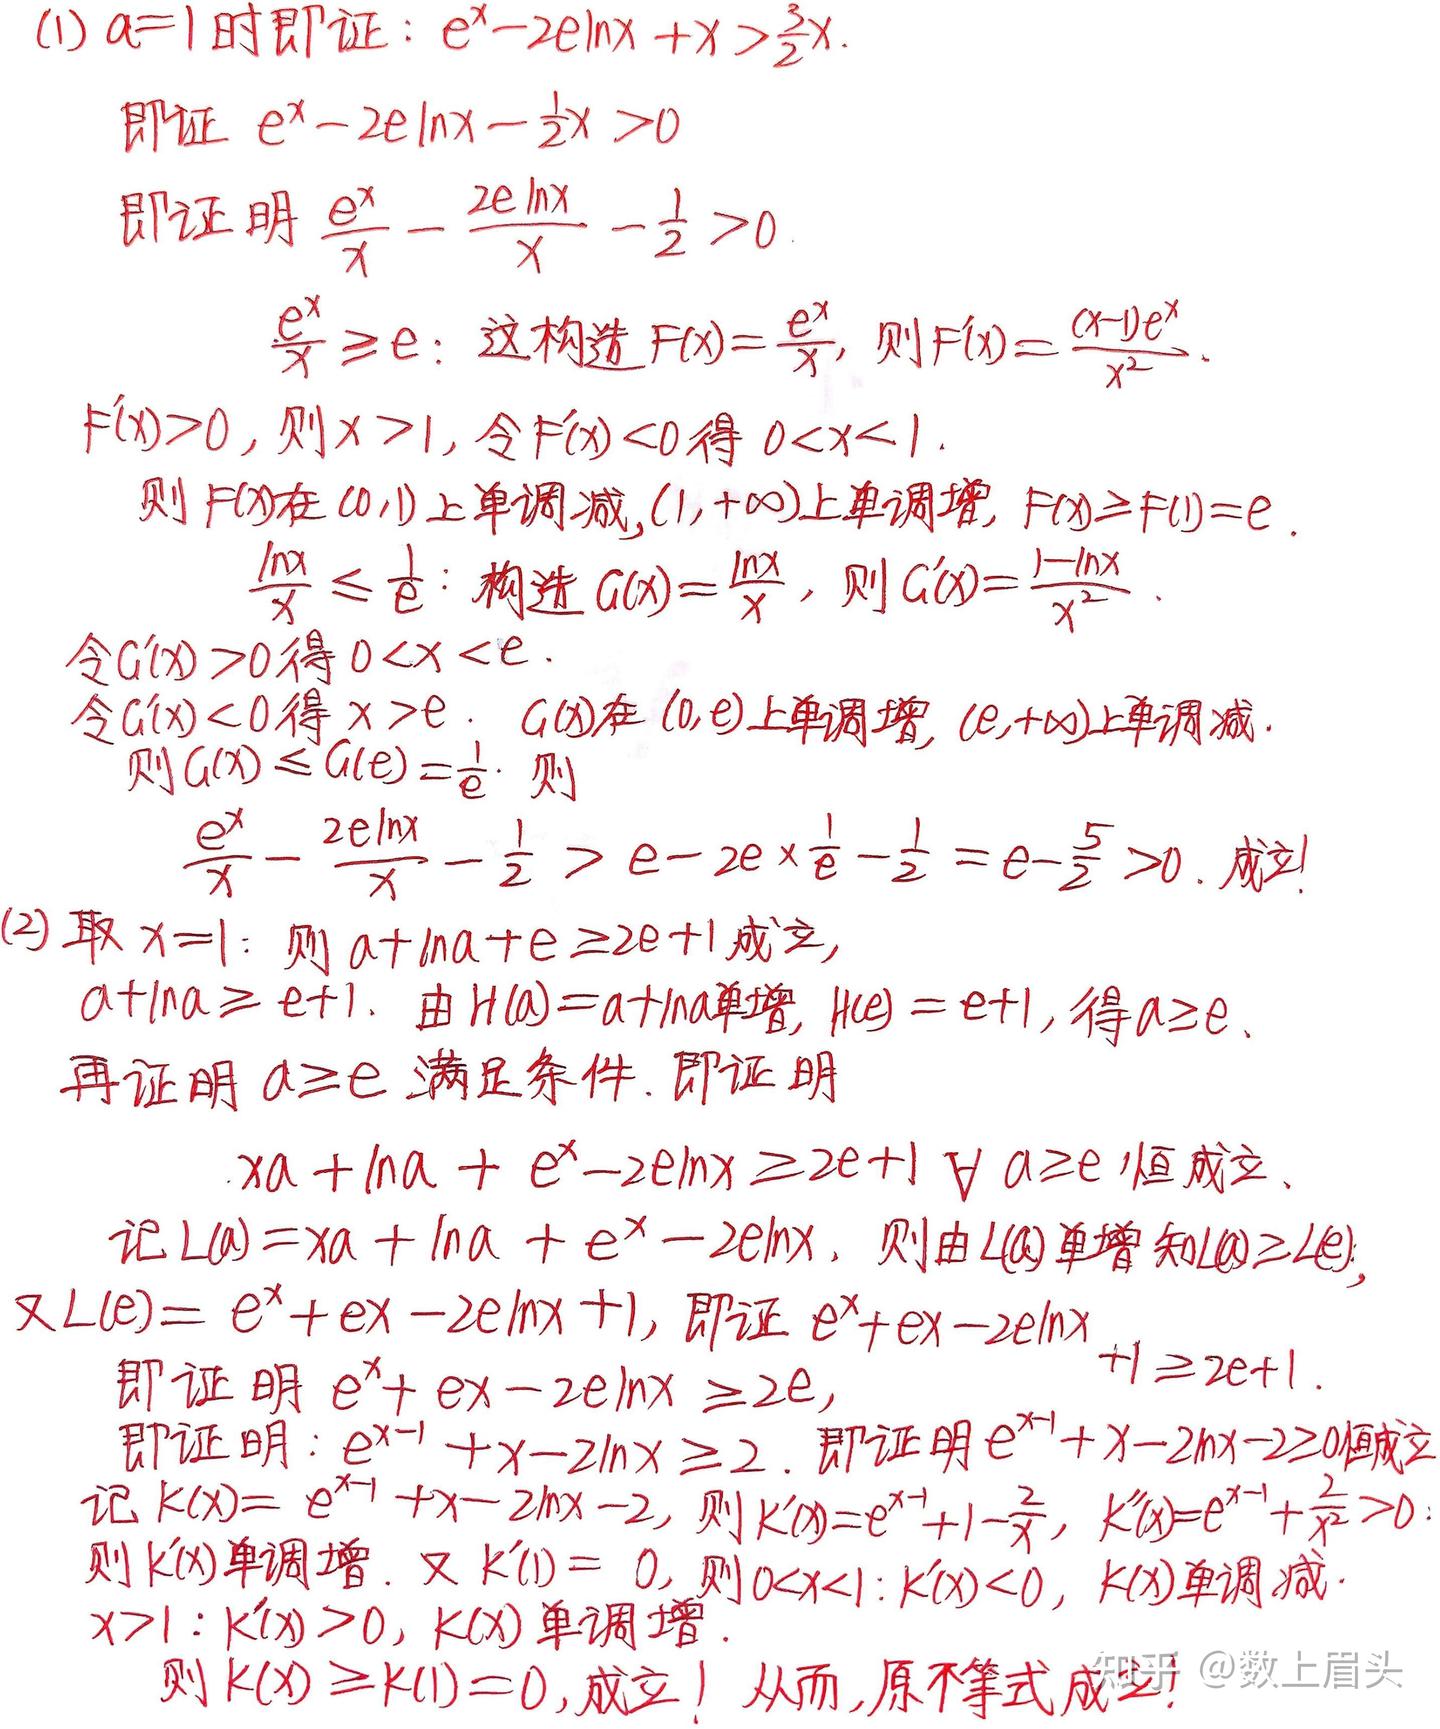 (1) a=1时即证: e^x-2elnx+x>3/2x.
即证 e^x-2elnx-1/2x>0
即证明 e^x/x - 2elnx/x - 1/2 >0.
e^x/x ≥ e: 这构造F(x)= e^x/x, 则F'(x)= (x-1)e^x/x^2.
F'(x)>0, 则x>1, 令F'(x)<0得 0<x<1.
则F(x)在(0,1)上单调减,(1,+∞)上单调增, F(x)≥F(1)=e.
lnx/x ≤ 1/e: 构造G(x)= lnx/x, 则G'(x)= 1-lnx/x^2.
令G'(x)>0得0<x<e.
令G'(x)<0得x>e. G(x)在(0,e)上单调增, (e,+∞)上单调减.
则G(x)≤G(e)=1/e. 则
e^x/x - 2elnx/x - 1/2 > e-2e×1/e-1/2 = e-5/2 >0. 成立!
(2) 取x=1: 则a+lna+e≥2e+1成立,
a+lna≥e+1. 由H(a)=a+lna单增, H(e)=e+1, 得a≥e.
再证明a≥e满足条件. 即证明
xa+lna+e^x-2elnx≥2e+1 ∀ a≥e恒成立.
记L(a)=xa+lna+e^x-2elnx, 则由L(a)单增知L(a)≥L(e),
又L(e)=e^x+ex-2elnx+1, 即证e^x+ex-2elnx
+1≥2e+1.
即证明e^x+ex-2elnx≥2e,
即证明: e^{x-1}+x-2lnx≥2. 即证明e^{x-1}+x-2lnx-2≥0恒成立
记K(x)=e^{x-1}+x-2lnx-2, 则K'(x)=e^{x-1}+1-2/x, K''(x)=e^{x-1}+2/x^2>0:
则K'(x)单调增. 又K'(1)=0, 则0<x<1: K'(x)<0, K(x)单调减.
x>1: K'(x)>0, K(x)单调增.
则K(x)≥K(1)=0, 成立! 从而, 原不等式成立!
知乎 @数上眉头